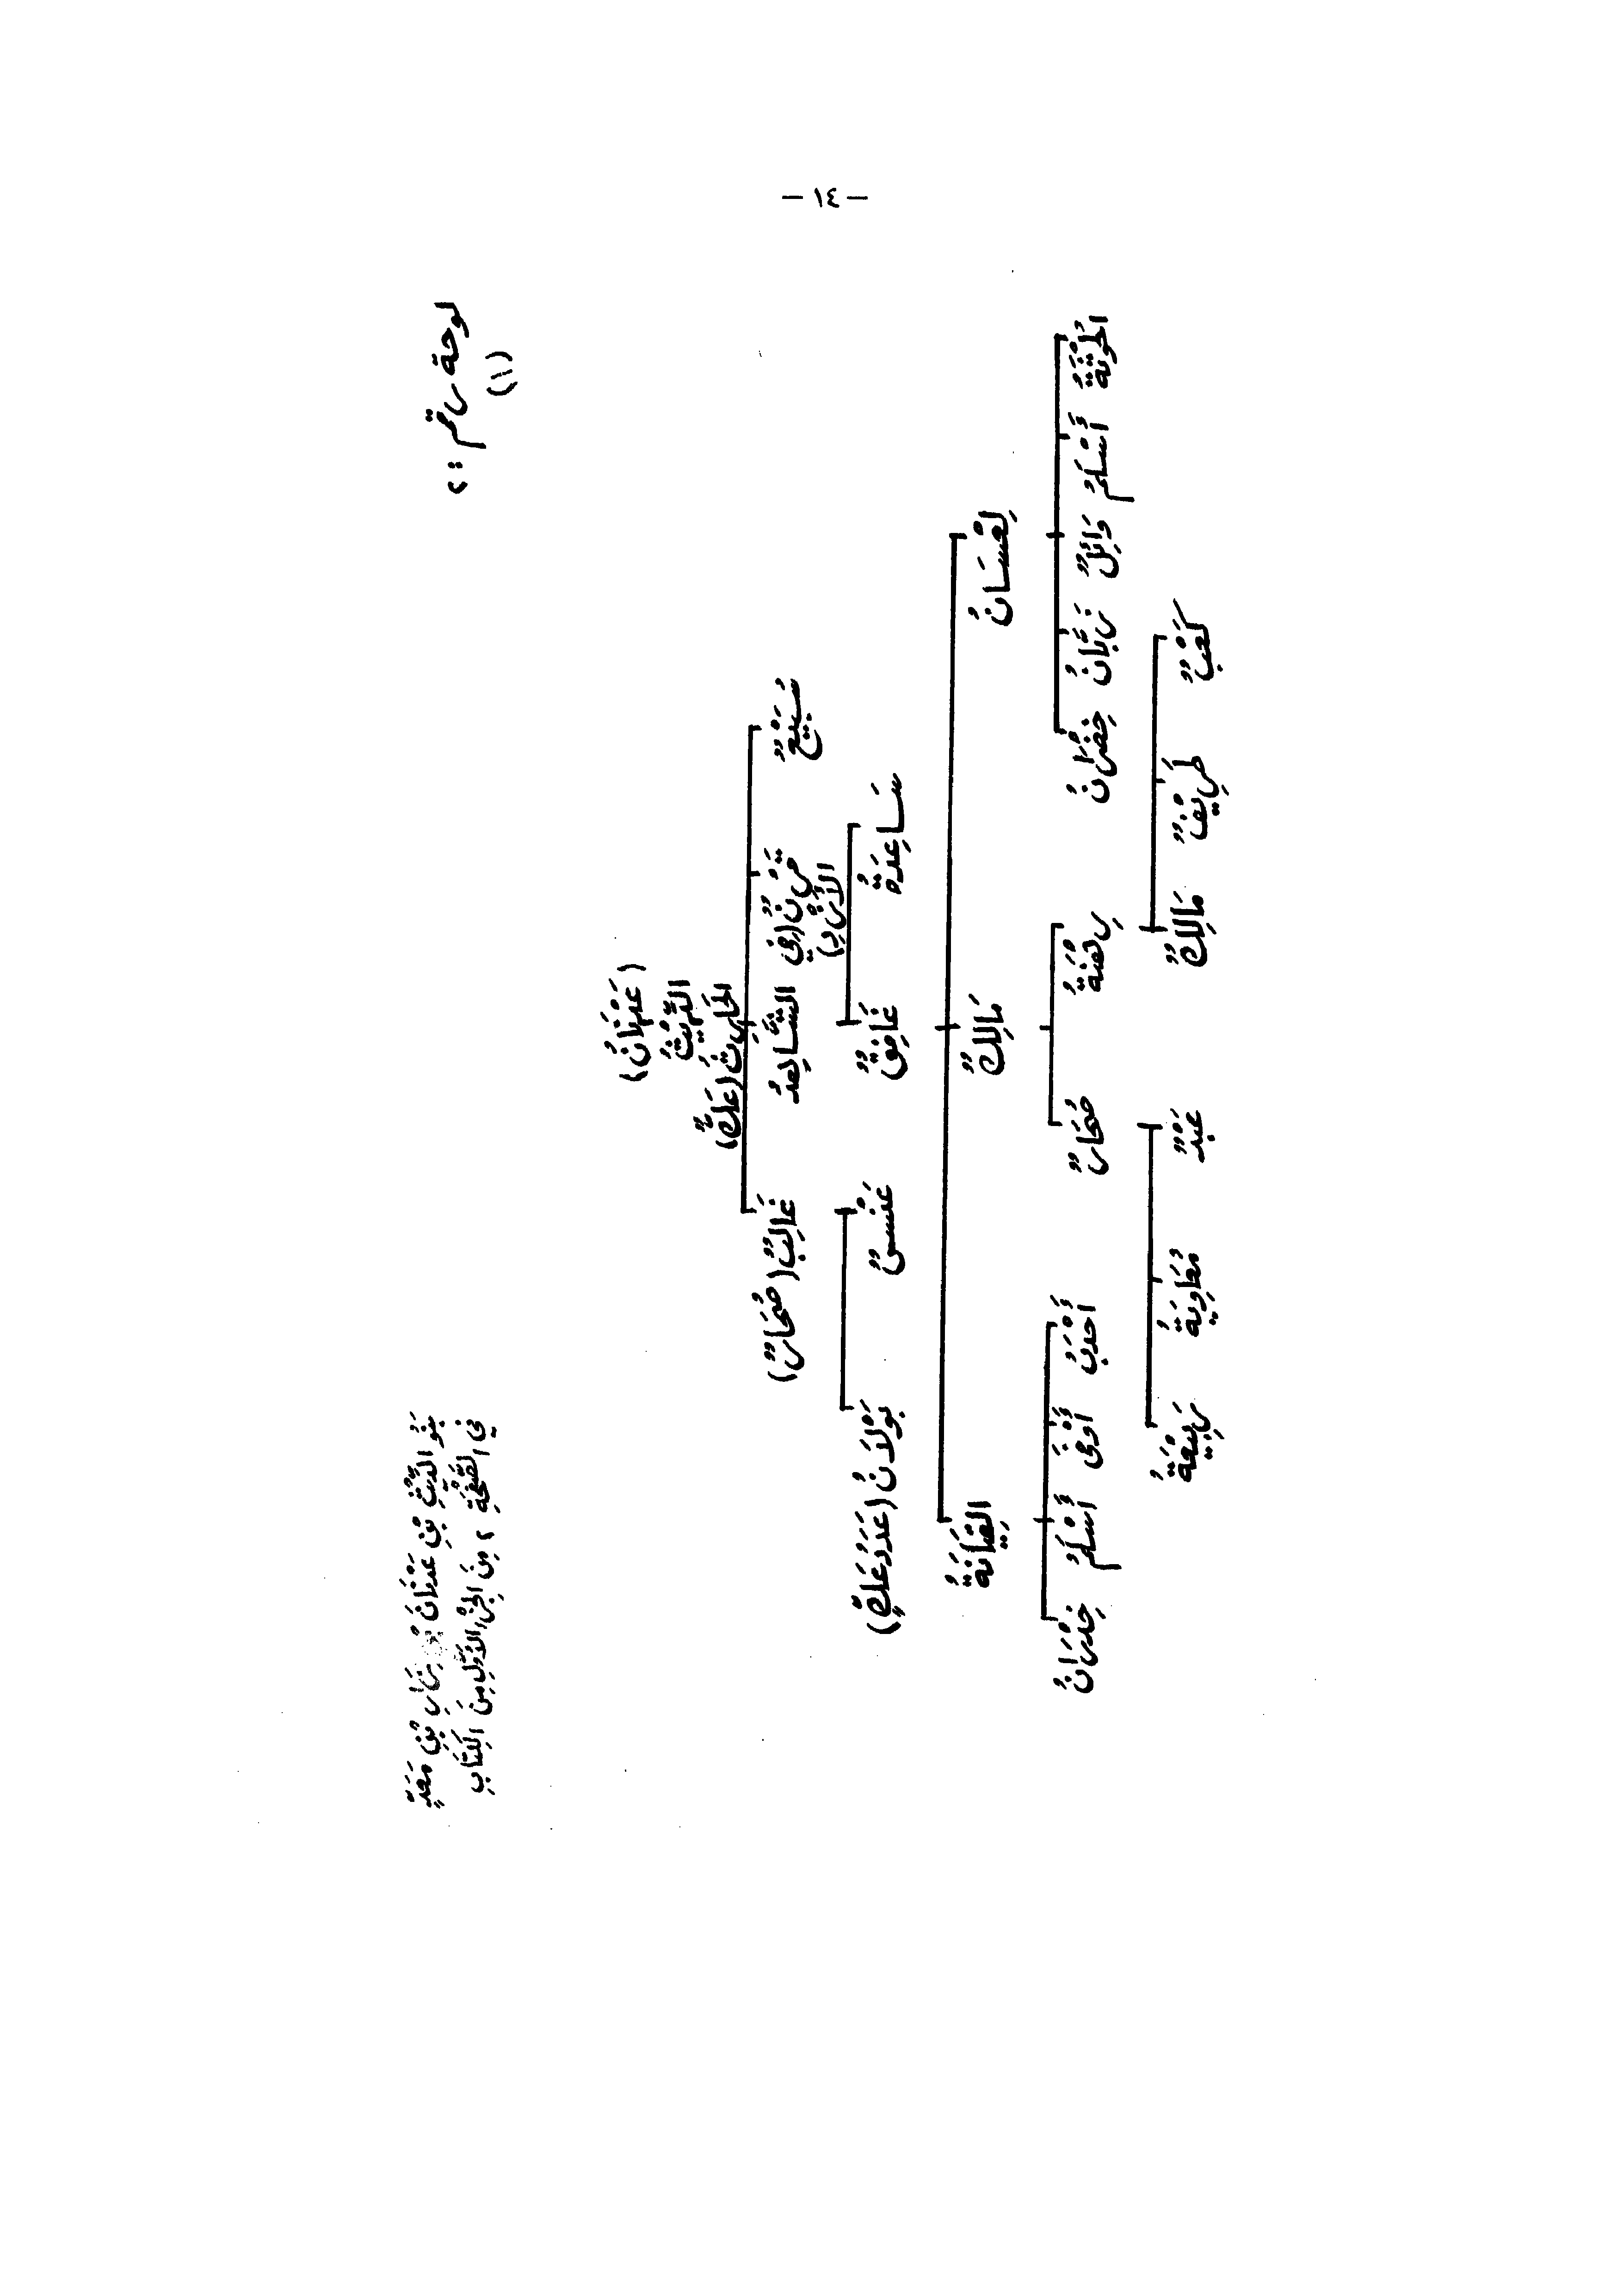 - ١٤ -
لوحة رقم : ٢
(١)
بَنُو الدِّيْثِ بْنِ عَدْنَانَ بْنِ نِزَارِ بْنِ مَعَدٍّ
فِي الصَّفْحَةِ ٢ مِنَ الجُزْءِ الأَوَّلِ مِنَ الكِتَابِ
(عَدْنَانُ)
الدِّيْثُ
الحَارِثُ (عَكٌّ)
سُبَيْعٌ
قَرْنٌ (فِي
الأَزْدِ)
الشَّاهِدُ
غَالِبٌ (صُحَارٌ)
سَاعِدَةُ
غَافِقٌ
عَنْسٌ
بَوْلَانُ (عَدَدُ عَكٍّ)
لِعْسَانُ
مَالِكٌ
القِيَانَةُ
الحُوْثَةُ
أَسْلَمُ
وَائِلٌ
زَبَّانُ
خِضْرَانُ
رِقْبَةُ
صُحَارٌ
أَحْدَبُ
أَوْفَى
أَسْلَمُ
خِدْرَانُ
كَعْبٌ
طَرِيْفٌ
مَالِكٌ
عَبْدٌ
مُعَاوِيَةُ
رَبِيْعَةُ